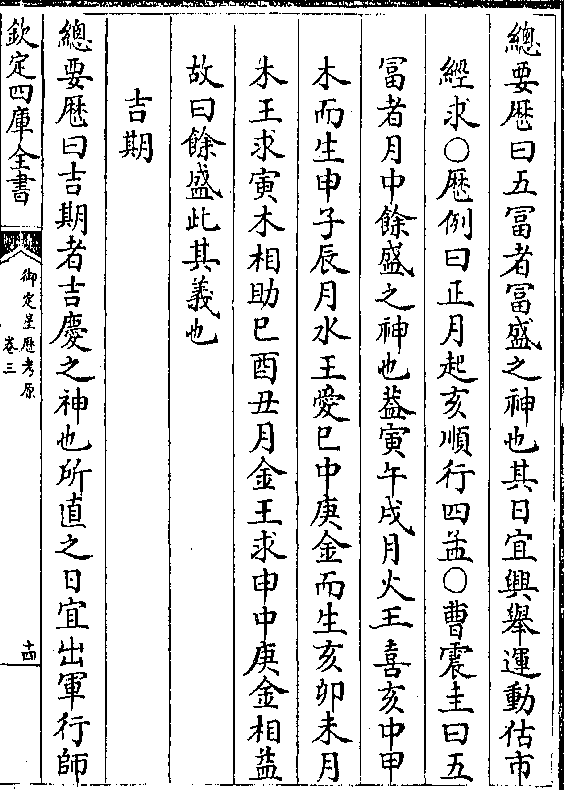 總要厯曰五冨者冨盛之神也其日宜興舉運動估市
經求○厯例曰正月起亥順行四孟○曹震圭曰五
冨者月中餘盛之神也葢寅午戌月火王喜亥中甲
木而生申子辰月水王愛巳中庚金而生亥卯未月
木王求寅木相助巳酉丑月金王求申中庚金相益
故曰餘盛此其義也
吉期
總要厯曰吉期者吉慶之神也所直之日宜出軍行師
欽定四庫全書
御定星厯考原
卷三
十四